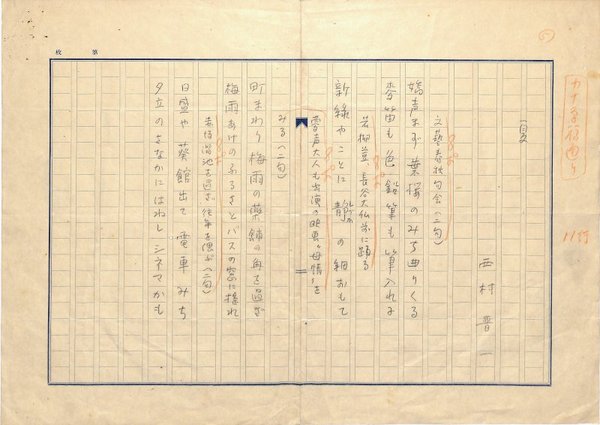 夏
西村晋一
文藝春秋句会(二句)
嬌声まず葉桜のみち曲りくる
麥笛も色鉛筆も筆入れに
若柳登、長谷大仏前に踊る
新緑やことに静の細おもて
雷声大人も出演の映畫"母情"を
みる(二句)
町まわり梅雨の薬舗の角を過ぎ
梅雨あけのふるさとバスの窓に揺れ
赤坂溜池を過ぎ、往年を偲ぶ(二句)
日盛や葵館出て電車みち
夕立のさなかにはねしシネマかも
11行
枚 第